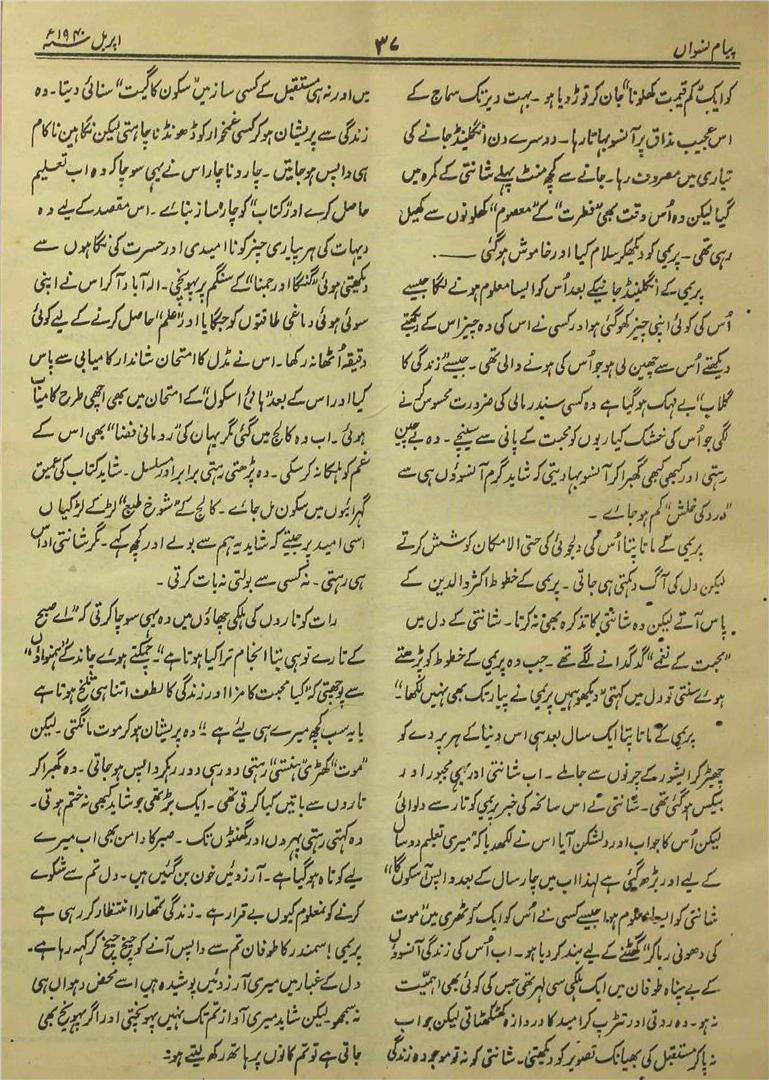 پیام نسواں
۳۷
اپریل سنہ ۱۹۴۰ء
کو ایک "کم قیمت کھلونا" جان کر توڑ دیا ہو۔ بہت دیر تک سماج کے
اس عجیب مذاق پر آنسو بہاتا رہا۔ دوسرے دن انگلینڈ جانے کی
تیاری میں مصروف رہا۔ جانے سے کچھ منٹ پہلے شانتی کے کمرہ میں
گیا لیکن وہ اُس وقت بھی "فطرت" کے "معصوم" کھلونوں سے کھیل
رہی تھی۔ پریمی کو دیکھکر سلام کیا اور خاموش ہو گئی ——
پریمی کے انگلینڈ جانیکے بعد اُس کو ایسا معلوم ہونے لگا جیسے
اُس کی کوئی اپنی چیز کھو گئی ہو اور کسی نے اس کی وہ چیز اس کے دیکھتے
دیکھتے اُس سے چھین لی ہو جو اُس کی ہونے والی تھی۔ جیسے "زندگی کا
گلاب" بے مہک ہو گیا ہے وہ کسی سندر مالی کی ضرورت محسوس کرنے
لگی جو اُس کی خشک کیاریوں کو محبت کے پانی سے سینچے۔ وہ بے چین
رہتی اور کبھی کبھی گھبرا کر آنسو بہا دیتی کہ شاید گرم آنسوؤں ہی سے
"درد کی خلش" کم ہو جاے۔
پریمی کے ماتا پتا اُس کی دلجوئی کی حتی الامکان کوشش کرتے
لیکن دل کی آگ دہکتی ہی جاتی۔ پریمی کے خطوط اکثر والدین کے
پاس آتے لیکن وہ شانتی کا تذکرہ بھی نہ کرتا۔ شانتی کے دل میں
"محبت کے نغمے" گدگدانے لگے تھے۔ جب وہ پریمی کے خطوط کو پڑھتے
ہوے سنتی تو دل میں کہتی "دیکھو ہمیں پریمی نے پیار تک بھی نہیں لکھا"
پریمی کے ماتا پتا ایک سال بعد ہی اس دنیا کے ہر پردے کو
چھیڑ کر ایشور کے چرنوں سے جا ملے۔ اب شانتی اور بھی مجبور اور
بیکس ہو گئی تھی۔ شانتی نے اس سانحہ کی خبر پریمی کو تار سے دلوائی
لیکن اُس کا جواب اور دلشکن آیا اس نے لکھدیا کہ "میری تعلیم دو سال
کے لیے اور بڑھ گئی ہے لہذا اب میں چار سال کے بعد واپس آ سکوں گا"
شانتی کو ایسا معلوم ہوا جیسے کسی نے اُس کو ایک کوٹھری میں "موت
کی دھونی رما کر" گھٹنے کے لیے بند کر دیا ہو۔ اب اُس کی زندگی آنسوؤں
کے بے پناہ طوفان میں ایک ہلکی سی لہر تھی جس کی کوئی بھی اہمیت
نہ ہو۔ وہ روتی اور تڑپ کر امید کا دروازہ کھٹکھٹاتی لیکن جواب
نہ پا کر مستقبل کی بھیانک تصویر کو دیکھتی۔ شانتی کو نہ تو موجودہ زندگی
میں اور نہ ہی مستقبل کے کسی ساز میں "سکون کا گیت" سنائی دیتا۔ وہ
زندگی سے پریشان ہو کر کسی غمخوار کو ڈھونڈنا چاہتی لیکن نگاہیں ناکام
ہی واپس ہو جاتیں۔ چار و ناچار اس نے یہی سوچا کہ وہ اب تعلیم
حاصل کرے اور "کتاب" کو چارہ ساز بناے۔ اس مقصد کے لیے وہ
دیہات کی ہر پیاری چیز کو نا امیدی اور حسرت کی نگاہوں سے
دیکھتی ہوئی "گنگا اور جمنا" کے سنگم پر پہونچی۔ الہ آباد آ کر اس نے اپنی
سوئی ہوئی دماغی طاقتوں کو جگایا اور "علم" حاصل کرنے کے لیے کوئی
دقیقہ اُٹھا نہ رکھا۔ اس نے مڈل کا امتحان شاندار کامیابی سے پاس
کیا اور اس کے بعد "ہائی اسکول" کے امتحان میں بھی اچھی طرح کامیاب
ہوئی۔ اب وہ کالج میں گئی مگر یہاں کی "رومانی فضا" بھی اس کے
غم کو ہلکا نہ کر سکی۔ وہ پڑھتی رہتی برابر اور مسلسل۔ شاید کتاب کی عمیق
گہرائیوں میں سکون مل جاے۔ کالج کے "شوخ طبع" لڑکے لڑکیاں
اسی امید پر جیتے کہ شاید یہ ہم سے بولے اور کچھ کہے۔ مگر شانتی اداس
ہی رہتی۔ نہ کسی سے بولتی نہ بات کرتی۔
رات کو تاروں کی ہلکی چھاؤں میں وہ یہی سوچا کرتی کہ "اے صبح
کے تارے تو ہی بتا انجام ترا کیا ہوتا ہے"۔ چمکتے ہوے چاند کے "ہمنواؤں"
سے پوچھتی کہ "کیا محبت کا مزا اور زندگی کا لطف اتنا ہی تلخ ہوتا ہے
یا یہ سب کچھ میرے ہی لیے ہے"۔ وہ پریشان ہو کر موت مانگتی۔ لیکن
"موت" کھڑی ہنستی رہتی دور ہی دور رہ کر واپس ہو جاتی۔ وہ گھبرا کر
تاروں سے باتیں کیا کرتی تھی۔ ایک بڑ تھی جو شاید کبھی نہ ختم ہوتی۔
وہ کہتی رہتی پہروں اور گھنٹوں تک۔ صبر کا دامن بھی اب میرے
لیے کوتاہ ہو گیا ہے۔ آرزوئیں خون بن گئیں ہیں۔ دل تم سے شکوے
کرنے کو نامعلوم کیوں بے قرار ہے۔ زندگی تمہارا انتظار کر رہی ہے
پریمی! سمندر کا طوفان تم سے واپس آنے کو چیخ چیخ کر کہہ رہا ہے۔
دل کے غبار میں میری آرزوئیں پوشیدہ ہیں اسے محض دہواں ہی
نہ سمجھو لیکن شاید میری آواز تم تک نہیں پہونچتی اور اگر پہونچ بھی
جاتی ہے تو تم کانوں پر ہاتھ رکھ لیتے ہو۔